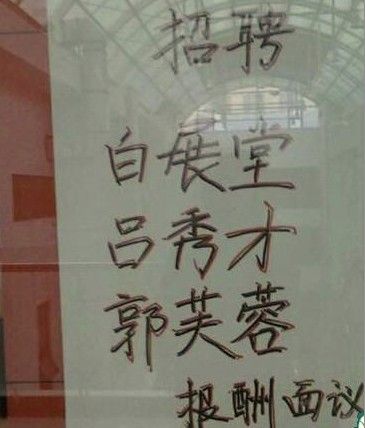 招聘
白展堂
吕秀才
郭芙蓉
报酬面议